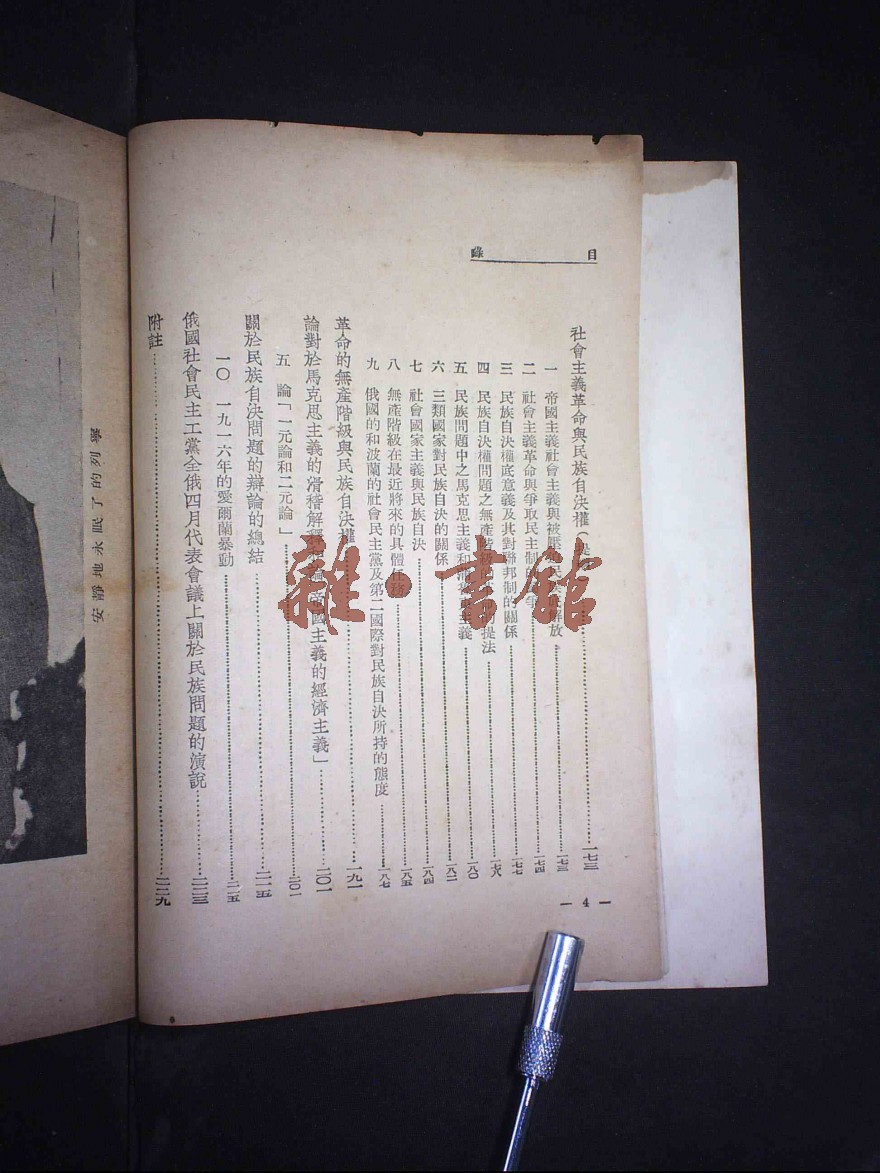 目錄
社會主義革命與民族自決權 一七三
一 帝國主義社會主義與被壓迫民族底解放 一七三
二 社會主義革命與爭取民主制的鬥爭 一七四
三 民族自決權底意義及其對聯邦制的關係 一七七
四 民族自決權問題之無產階級 提法 一七八
五 民族問題中之馬克思主義和蒲魯東主義 一八〇
六 三類國家對民族自決的關係 一八二
七 社會國家主義與民族自決 一八四
八 無產階級在最近將來的具體任務 一八五
九 俄國的和波蘭的社會民主黨及第二國際對民族自決所持的態度 一八七
革命的無產階級與民族自決權 一九一
論對於馬克思主義的滑稽解釋和論「帝國主義的經濟主義」 二〇一
五 論「一元論和二元論」 二〇一
關於民族自決問題的辯論的總結 二一五
一〇 一九一六年的愛爾蘭暴動 二一五
俄國社會民主工黨全俄四月代表會議上關於民族問題的演說 二二三
附註 二二九
— 4 —
安靜地永眠了的列寧
雜·書館